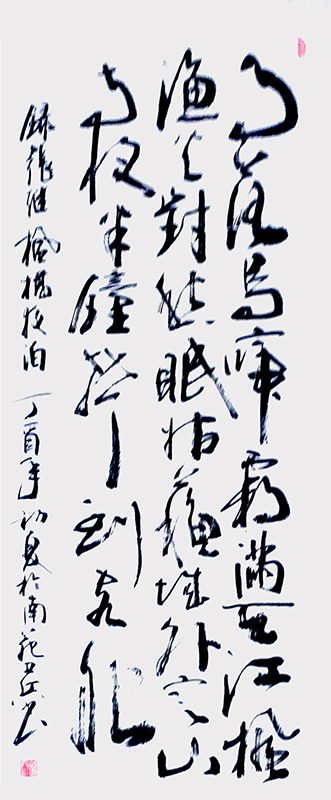 月落烏啼霜滿天江楓
漁火對愁眠姑蘇城外寒山
寺夜半鐘聲到客船
錄張繼楓橋夜泊 丁酉年初夏於南苑